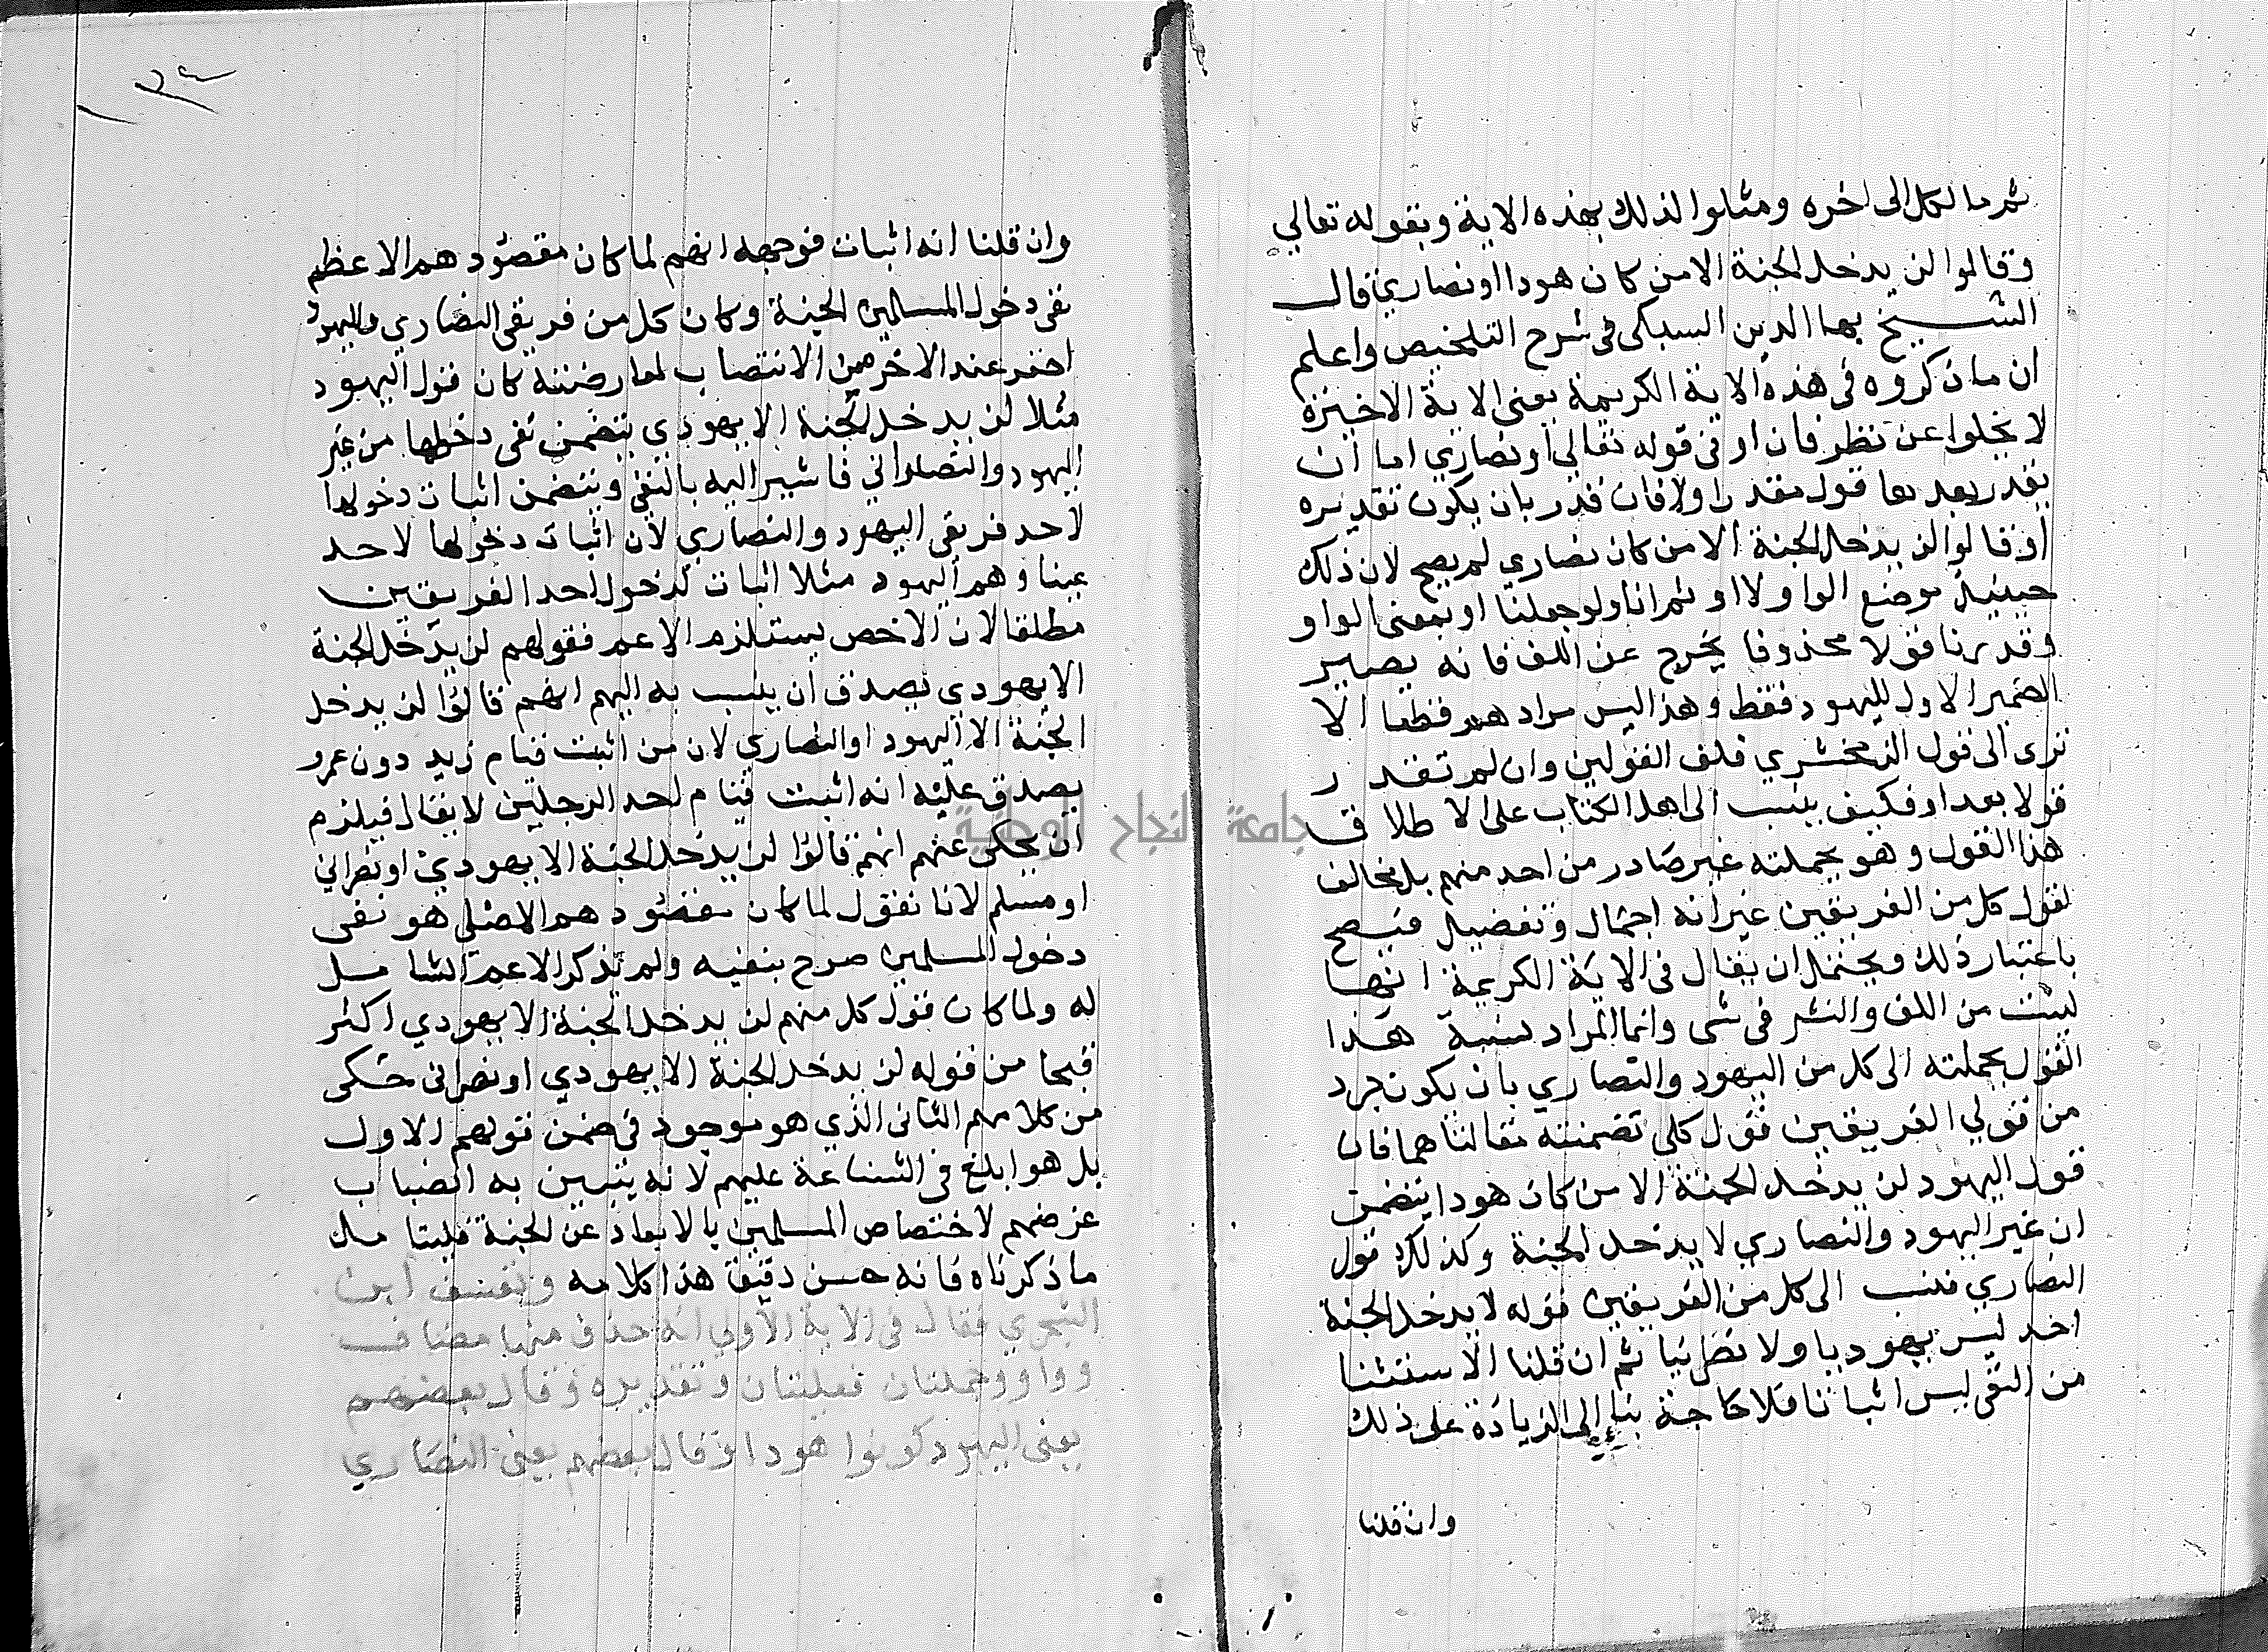 ثم ما لكل الى اخره ومثلوا لذلك بهذه الاية وبقوله تعالي
وقالوا لن يدخل الجنة الا من كان هودا او نصاري قال
الشيخ بها الدين السبكى فى شرح التلخيص واعلم
ان ما ذكروه فى هذه الاية الكريمة يعنى الاية الاخيرة
لا يخلوا عن نظر فان او فى قوله تعالى او نصاري اما ان
يقدر بعدها قول مقدر اولا فان قدر بان يكون تقديره
او قالوا لن يدخل الجنة الا من كان نصاري لم يصح لان ذلك
حينيذ موضع الواو لا او ثم انا ولو جعلنا او بمعنى الواو
وقدرنا قولا محذوفا يخرج عن اللف فانه يصير
الضمير الاول لليهود فقط وهذا ليس مرادهم قطعا الا
ترى الى قول الزمخشري فلف القولين وان لم تقدر
قولا بعد او فكيف ينسب الى اهل الكتاب على الاطلاق
هذا القول وهو بجملته غير صادر من احد منهم بل مخالف
لقول كل من الفريقين غير انه اجمال وتفصيل فيصح
باعتبار ذلك ويحتمل ان يقال فى الاية الكريمة انها
ليست من اللف والنشر فى شى وانما المراد نسبة هذا
القول بجملته الى كل من اليهود والنصاري بان يكون جرد
من قولي الفريقين قول كلى تضمنته مقالتاهما فان
قول اليهود لن يدخل الجنة الا من كان هودا يتضمن
ان غير اليهود والنصاري لا يدخل الجنة وكذلك قول
النصاري فنسب الى كل من الفريقين قوله لا يدخل الجنة
احد ليس يهوديا ولا نصرانيا ثم ان قلنا الاستثنا
من النفى ليس اثباتا فلا حاجة بنا الى الزيادة على ذلك
وان قلنا
وان قلنا انه اثبات فوجهه انهم لما كان مقصودهم الاعظم
نفى دخول المسلمين الجنة وكان كل من فريقى النصاري واليهود
احقر عند الاخر من الانتصاب لمعارضته كان قول اليهود
مثلا لن يدخل الجنة الا يهودي يتضمن نفى دخولها من غير
اليهود والنصارى فاشير اليه بالنفى وتتضمن اثبات دخولها
لاحد فريقى اليهود والنصاري لان اثبات دخولها لاحد
عينا وهم اليهود مثلا اثبات لدخول احد الفريقين
مطلقا لان الاخص يستلزم الاعم فقولهم لن يدخل الجنة
الا يهودي يصدق ان ينسب به اليهم انهم قالوا لن يدخل
الجنة الا اليهود او النصارى لان من اثبت قيام زيد دون عمرو
يصدق عليه انه اثبت قيام احد الرجلين لا يقال فيلزم
ان يحكى عنهم انهم قالوا لن يدخل الجنة الا يهودي او نصراني
او مسلم لانا نقول لما كان مقصودهم الاصلى هو نفى
دخول المسلمين صرح بنفيه ولم تذكر الاعم الشامل
له ولما كان قول كل منهم لن يدخل الجنة الا يهودي اكثر
قبحا من قوله لن يدخل الجنة الا يهودي او نصرانى حكى
من كلامهم الثانى الذي هو موجود فى ضمن قولهم الاول
بل هو ابلغ فى الشناعة عليهم لانه يتبين به انصباب
غرضهم لاختصاص المسلمين بالابعاد عن الجنة فليتامل
ما ذكرناه فانه حسن دقيق هذا كلامه وتعسف ابن
الشجري فقال فى الاية الاولي انه حذف منها مضاف
وواو وجملتان فعليتان وتقديره وقال بعضهم
يعنى اليهود كونوا هودا وقال بعضهم يعنى النصاري
جامعة النجاح الوطنية